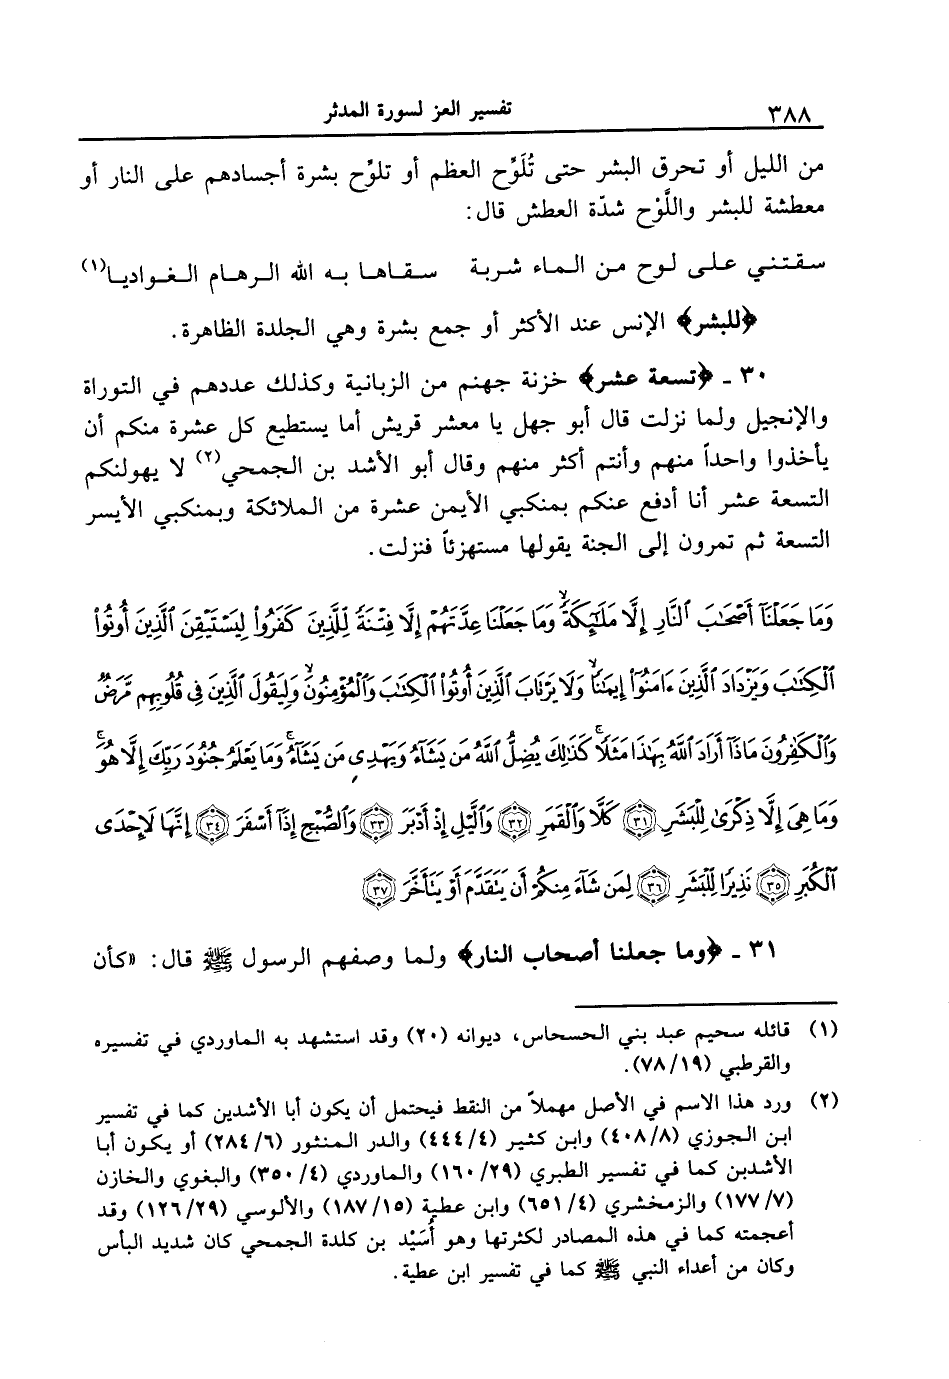 ٣٨٨ تفسير العز لسورة المدثر
من الليل أو تحرق البشر حتى تُلَوِّح العظم أو تلوِّح بشرة أجسادهم على النار أو
معطشة للبشر واللَّوْح شدّة العطش قال:
سقتني على لوح من الماء شربة سقاها به الله الرهام الغواديا(١)
﴿للبشر﴾ الإنس عند الأكثر أو جمع بشرة وهي الجلدة الظاهرة.
٣٠ ـ ﴿تسعة عشر﴾ خزنة جهنم من الزبانية وكذلك عددهم في التوراة
والإنجيل ولما نزلت قال أبو جهل يا معشر قريش أما يستطيع كل عشرة منكم أن
يأخذوا واحداً منهم وأنتم أكثر منهم وقال أبو الأشد بن الجمحي(٢) لا يهولنكم
التسعة عشر أنا أدفع عنكم بمنكبي الأيمن عشرة من الملائكة وبمنكبي الأيسر
التسعة ثم تمرون إلى الجنة يقولها مستهزئاً فنزلت.
وَمَا جَعَلْنَآ أَصْحَٰبَ ٱلنَّارِ إِلَّا مَلَٰٓئِكَةً ۙ وَمَا جَعَلْنَا عِدَّتَهُمْ إِلَّا فِتْنَةً لِّلَّذِينَ كَفَرُوا۟ لِيَسْتَيْقِنَ ٱلَّذِينَ أُوتُوا۟
ٱلْكِتَٰبَ وَيَزْدَادَ ٱلَّذِينَ ءَامَنُوٓا۟ إِيمَٰنًا ۙ وَلَا يَرْتَابَ ٱلَّذِينَ أُوتُوا۟ ٱلْكِتَٰبَ وَٱلْمُؤْمِنُونَ ۙ وَلِيَقُولَ ٱلَّذِينَ فِى قُلُوبِهِم مَّرَضٌ
وَٱلْكَٰفِرُونَ مَاذَآ أَرَادَ ٱللَّهُ بِهَٰذَا مَثَلًا ۚ كَذَٰلِكَ يُضِلُّ ٱللَّهُ مَن يَشَآءُ وَيَهْدِى مَن يَشَآءُ ۚ وَمَا يَعْلَمُ جُنُودَ رَبِّكَ إِلَّا هُوَ ۚ
وَمَا هِىَ إِلَّا ذِكْرَىٰ لِلْبَشَرِ ﴿٣١﴾ كَلَّا وَٱلْقَمَرِ ﴿٣٢﴾ وَٱلَّيْلِ إِذْ أَدْبَرَ ﴿٣٣﴾ وَٱلصُّبْحِ إِذَآ أَسْفَرَ ﴿٣٤﴾ إِنَّهَا لَإِحْدَى
ٱلْكُبَرِ ﴿٣٥﴾ نَذِيرًا لِّلْبَشَرِ ﴿٣٦﴾ لِمَن شَآءَ مِنكُمْ أَن يَتَقَدَّمَ أَوْ يَتَأَخَّرَ ﴿٣٧﴾
٣١ ـ ﴿وما جعلنا أصحاب النار﴾ ولما وصفهم الرسول ﷺ قال: «كأن
(١) قائله سحيم عبد بني الحسحاس، ديوانه (٢٠) وقد استشهد به الماوردي في تفسيره
والقرطبي (٧٨/١٩).
(٢) ورد هذا الاسم في الأصل مهملاً من النقط فيحتمل أن يكون أبا الأشدين كما في تفسير
ابن الجوزي (٤٠٨/٨) وابن كثير (٤٤٤/٤) والدر المنثور (٢٨٤/٦) أو يكون أبا
الأشدين كما في تفسير الطبري (١٦٠/٢٩) والماوردي (٣٥٠/٤) والبغوي والخازن
(١٧٧/٧) والزمخشري (٦٥١/٤) وابن عطية (١٨٧/١٥) والألوسي (١٢٦/٢٩) وقد
أعجمته كما في هذه المصادر لكثرتها وهو أُسَيْد بن كلدة الجمحي كان شديد البأس
وكان من أعداء النبي ﷺ كما في تفسير ابن عطية.